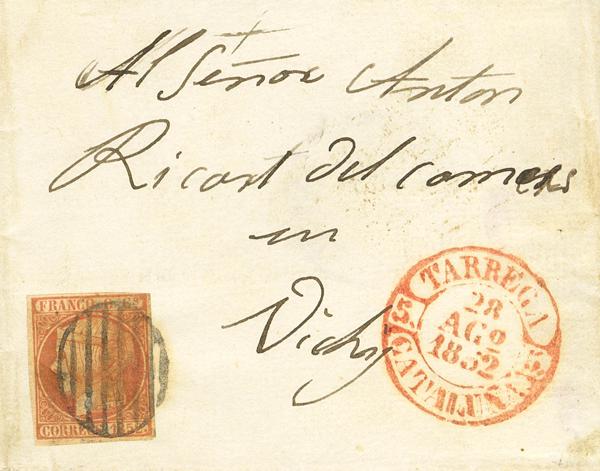 Al Señor Anton
Ricart del comers
en
Vichy
FRANCO 6 Cs
CORREOS 1852
TARREGA
28
AGO
1852
CATALUÑA